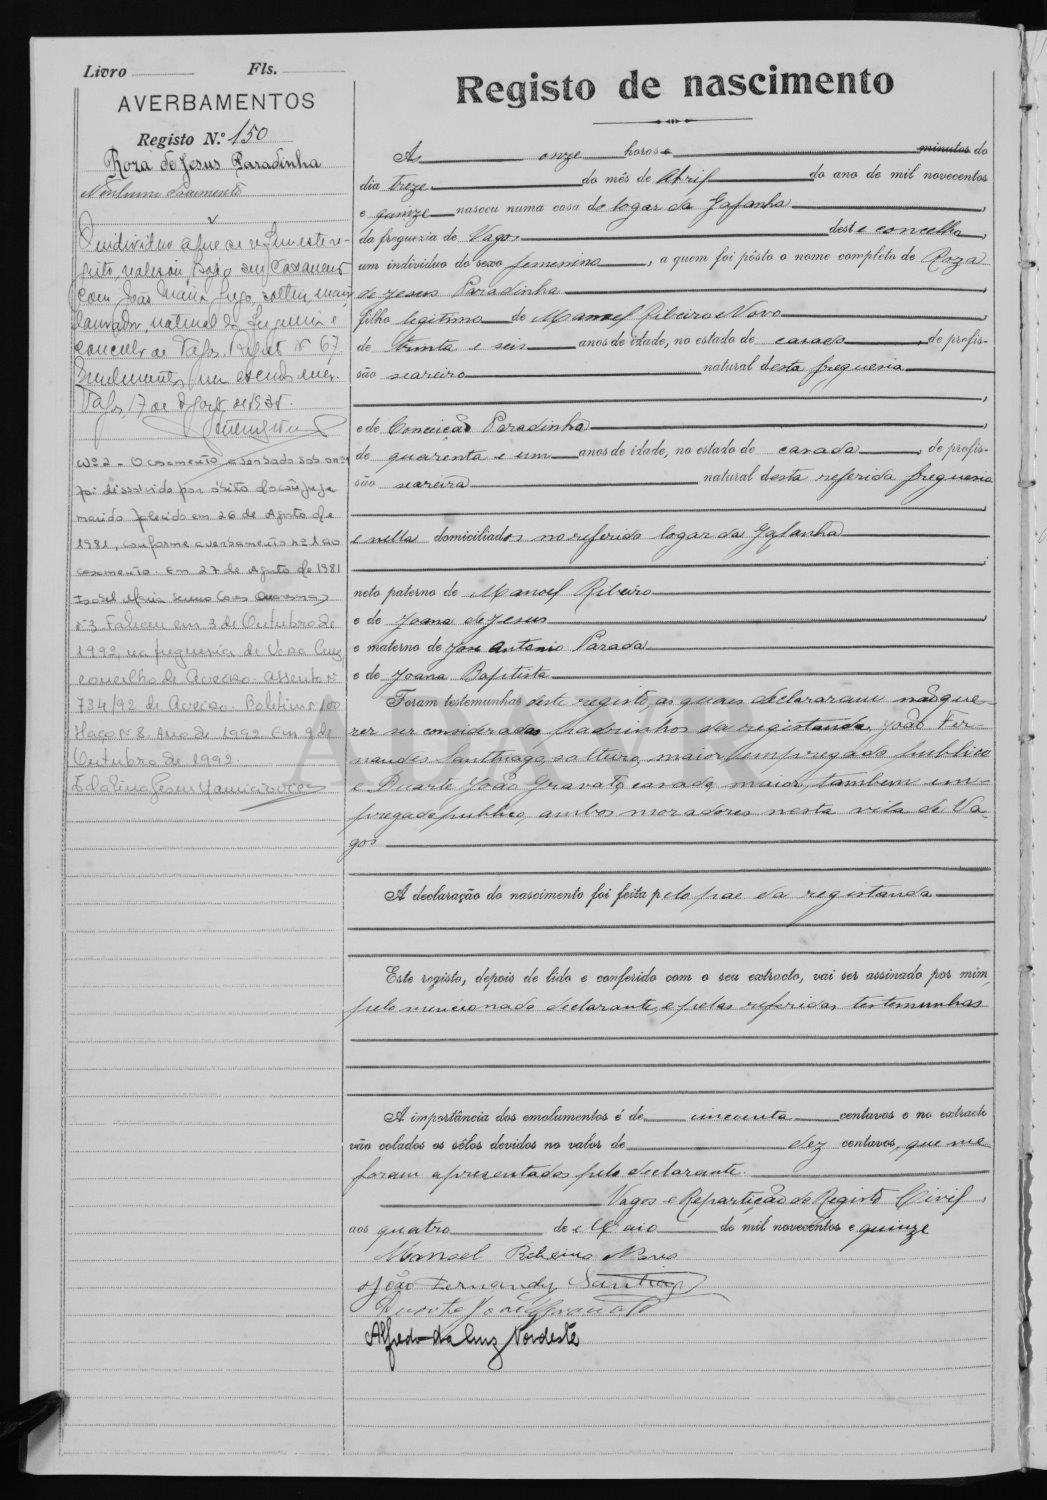 Livro Fls.
AVERBAMENTOS
Registo N.º 150
Roza de Jesus Paradinha
Nenhum Documento
O individuo a que se refere este re-
gisto, realisou hoje seu casamento
com João Maria solteiro, maior,
lavrador, natural da freguesia e
concelho de Vagos. Registo nº 67.
Emolumentos um escudo
Vagos 17 de de 193
Nº 2 - O casamento averbado sob o nº 1
foi dissolvido por óbito do conjuge
marido falecido em 26 de Agosto de
1981, conforme averbamento nº 1 ao
casamento. Em 27 de Agosto de 1981
Isabel Maria
nº 3 Faleceu em 3 de Outubro de
1992, na freguesia de Vera Cruz,
concelho de Aveiro. Assento nº
734/92 de Aveiro. Boletim nº 100
Maço nº 8. Ano de 1992. Em 9 de
Outubro de 1992
Registo de nascimento
A's onze horas e minutos do
dia treze do mês de Abril do ano de mil novecentos
e quinze nasceu numa casa do logar da Gafanha,
da freguezia de Vagos deste concelho,
um individuo do sexo femenino, a quem foi pôsto o nome completo de Roza
de Jesus Paradinha
filho legitimo de Manoel Ribeiro Novo
de trinta e seis anos de idade, no estado de casado, de profis-
são seareiro natural desta freguesia
e de Conceição Paradinha
de quarenta e um anos de idade, no estado de casada, de profis-
são seareira natural desta referida freguesia
e nella domiciliados no referido logar da Gafanha
neto paterno de Manoel Ribeiro
e de Joana de Jesus
e materno de José Antonio Parada
e de Joana Baptista
Foram testemunhas deste registo, as quaes declararam não que-
rer ser considerados padrinhos da registanda, João Fer-
nandes Santhiago, solteiro, maior, empregado publico
e Duarte João Gravato, casado, maior, tambem em-
pregado publico, ambos moradores nesta vila de Va-
gos
A declaração do nascimento foi feita pelo pae da registanda
Este registo, depois de lido e conferido com o seu extracto, vai ser assinado por mim,
pelo mencionado declarante, e pelas referidas testemunhas
A importância dos emolumentos é de cincoenta centavos e no extracto
vão colados os sêlos devidos no valor de dez centavos, que me
foram apresentados pelo declarante.
Vagos e Repartição do Registo Civil,
aos quatro de Maio de mil novecentos e quinze
Manoel Ribeiro Novo
João Fernandes Santiago
Duarte João Gravato
Alfredo da Cruz Nordeste
ADAVR